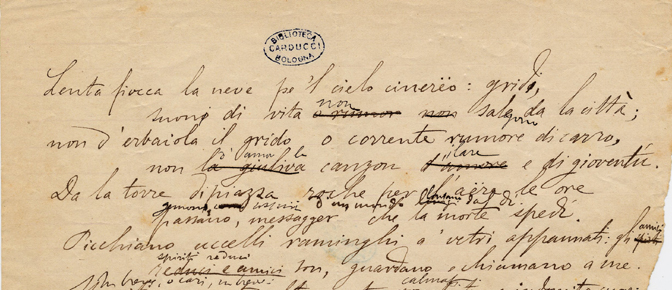 BIBLIOTECA
CARDUCCI
BOLOGNA
Lenta fiocca la neve pe 'l cielo cinerëo: gridi,
non
suoni di vita o rumor non salgono da la città;
non d'erbaiola il grido o corrente rumore di carro,
d'amor la ilare
non la giuliva canzon d'amore e di gioventù.
Da la torre di piazza roche per l'aëre le ore
gemono, come sospir d'un mondo lontano dal dì.
passano, messagger che la morte spedì.
Picchiano uccelli raminghi a' vetri appannati: gli amici
spiriti reduci
reduci e amici son, guardano e chiamano a me.
In breve, o cari, in breve
calmati